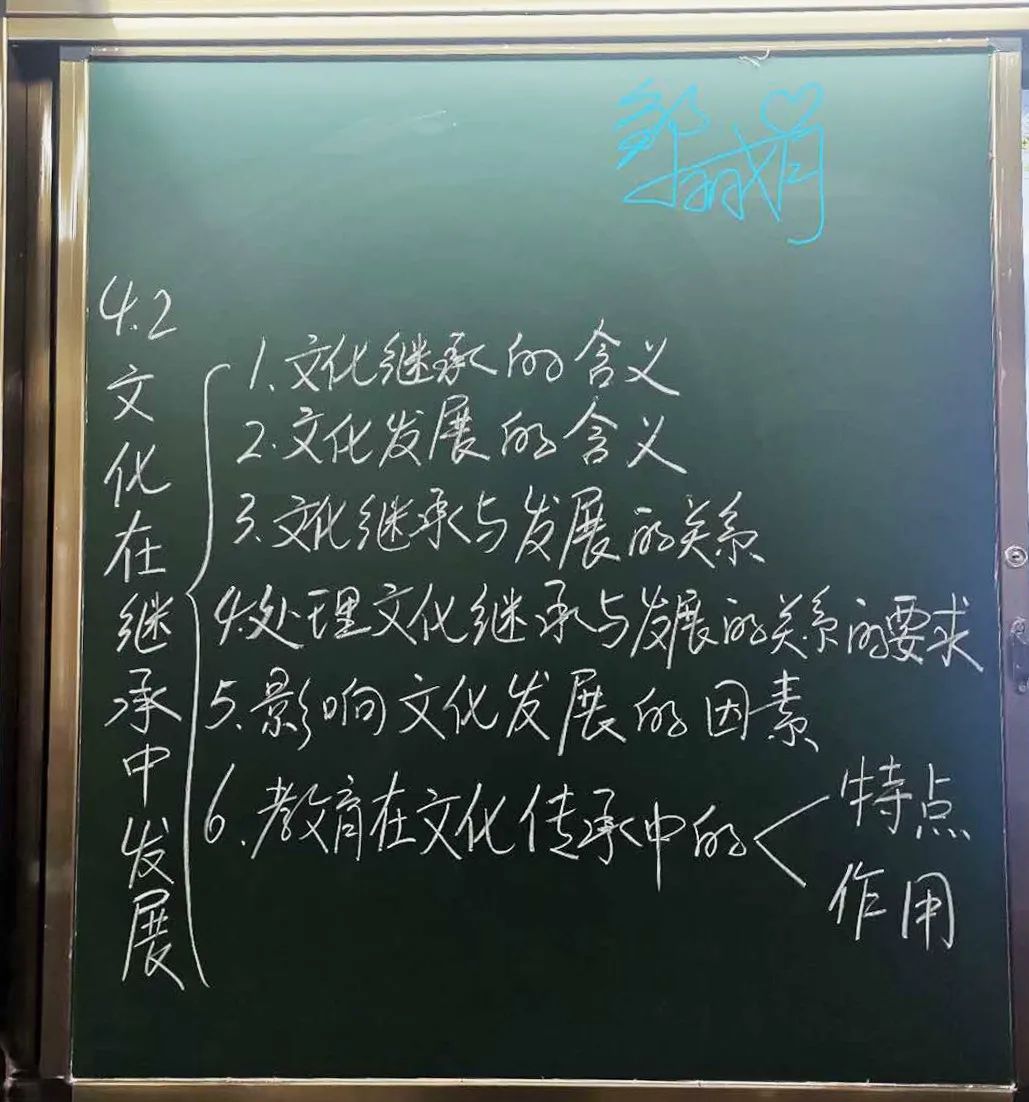 4.2
文化在继承中发展
1.文化继承的含义
2.文化发展的含义
3.文化继承与发展的关系
4.处理文化继承与发展的关系的要求
5.影响文化发展的因素
6.教育在文化传承中的
特点
作用